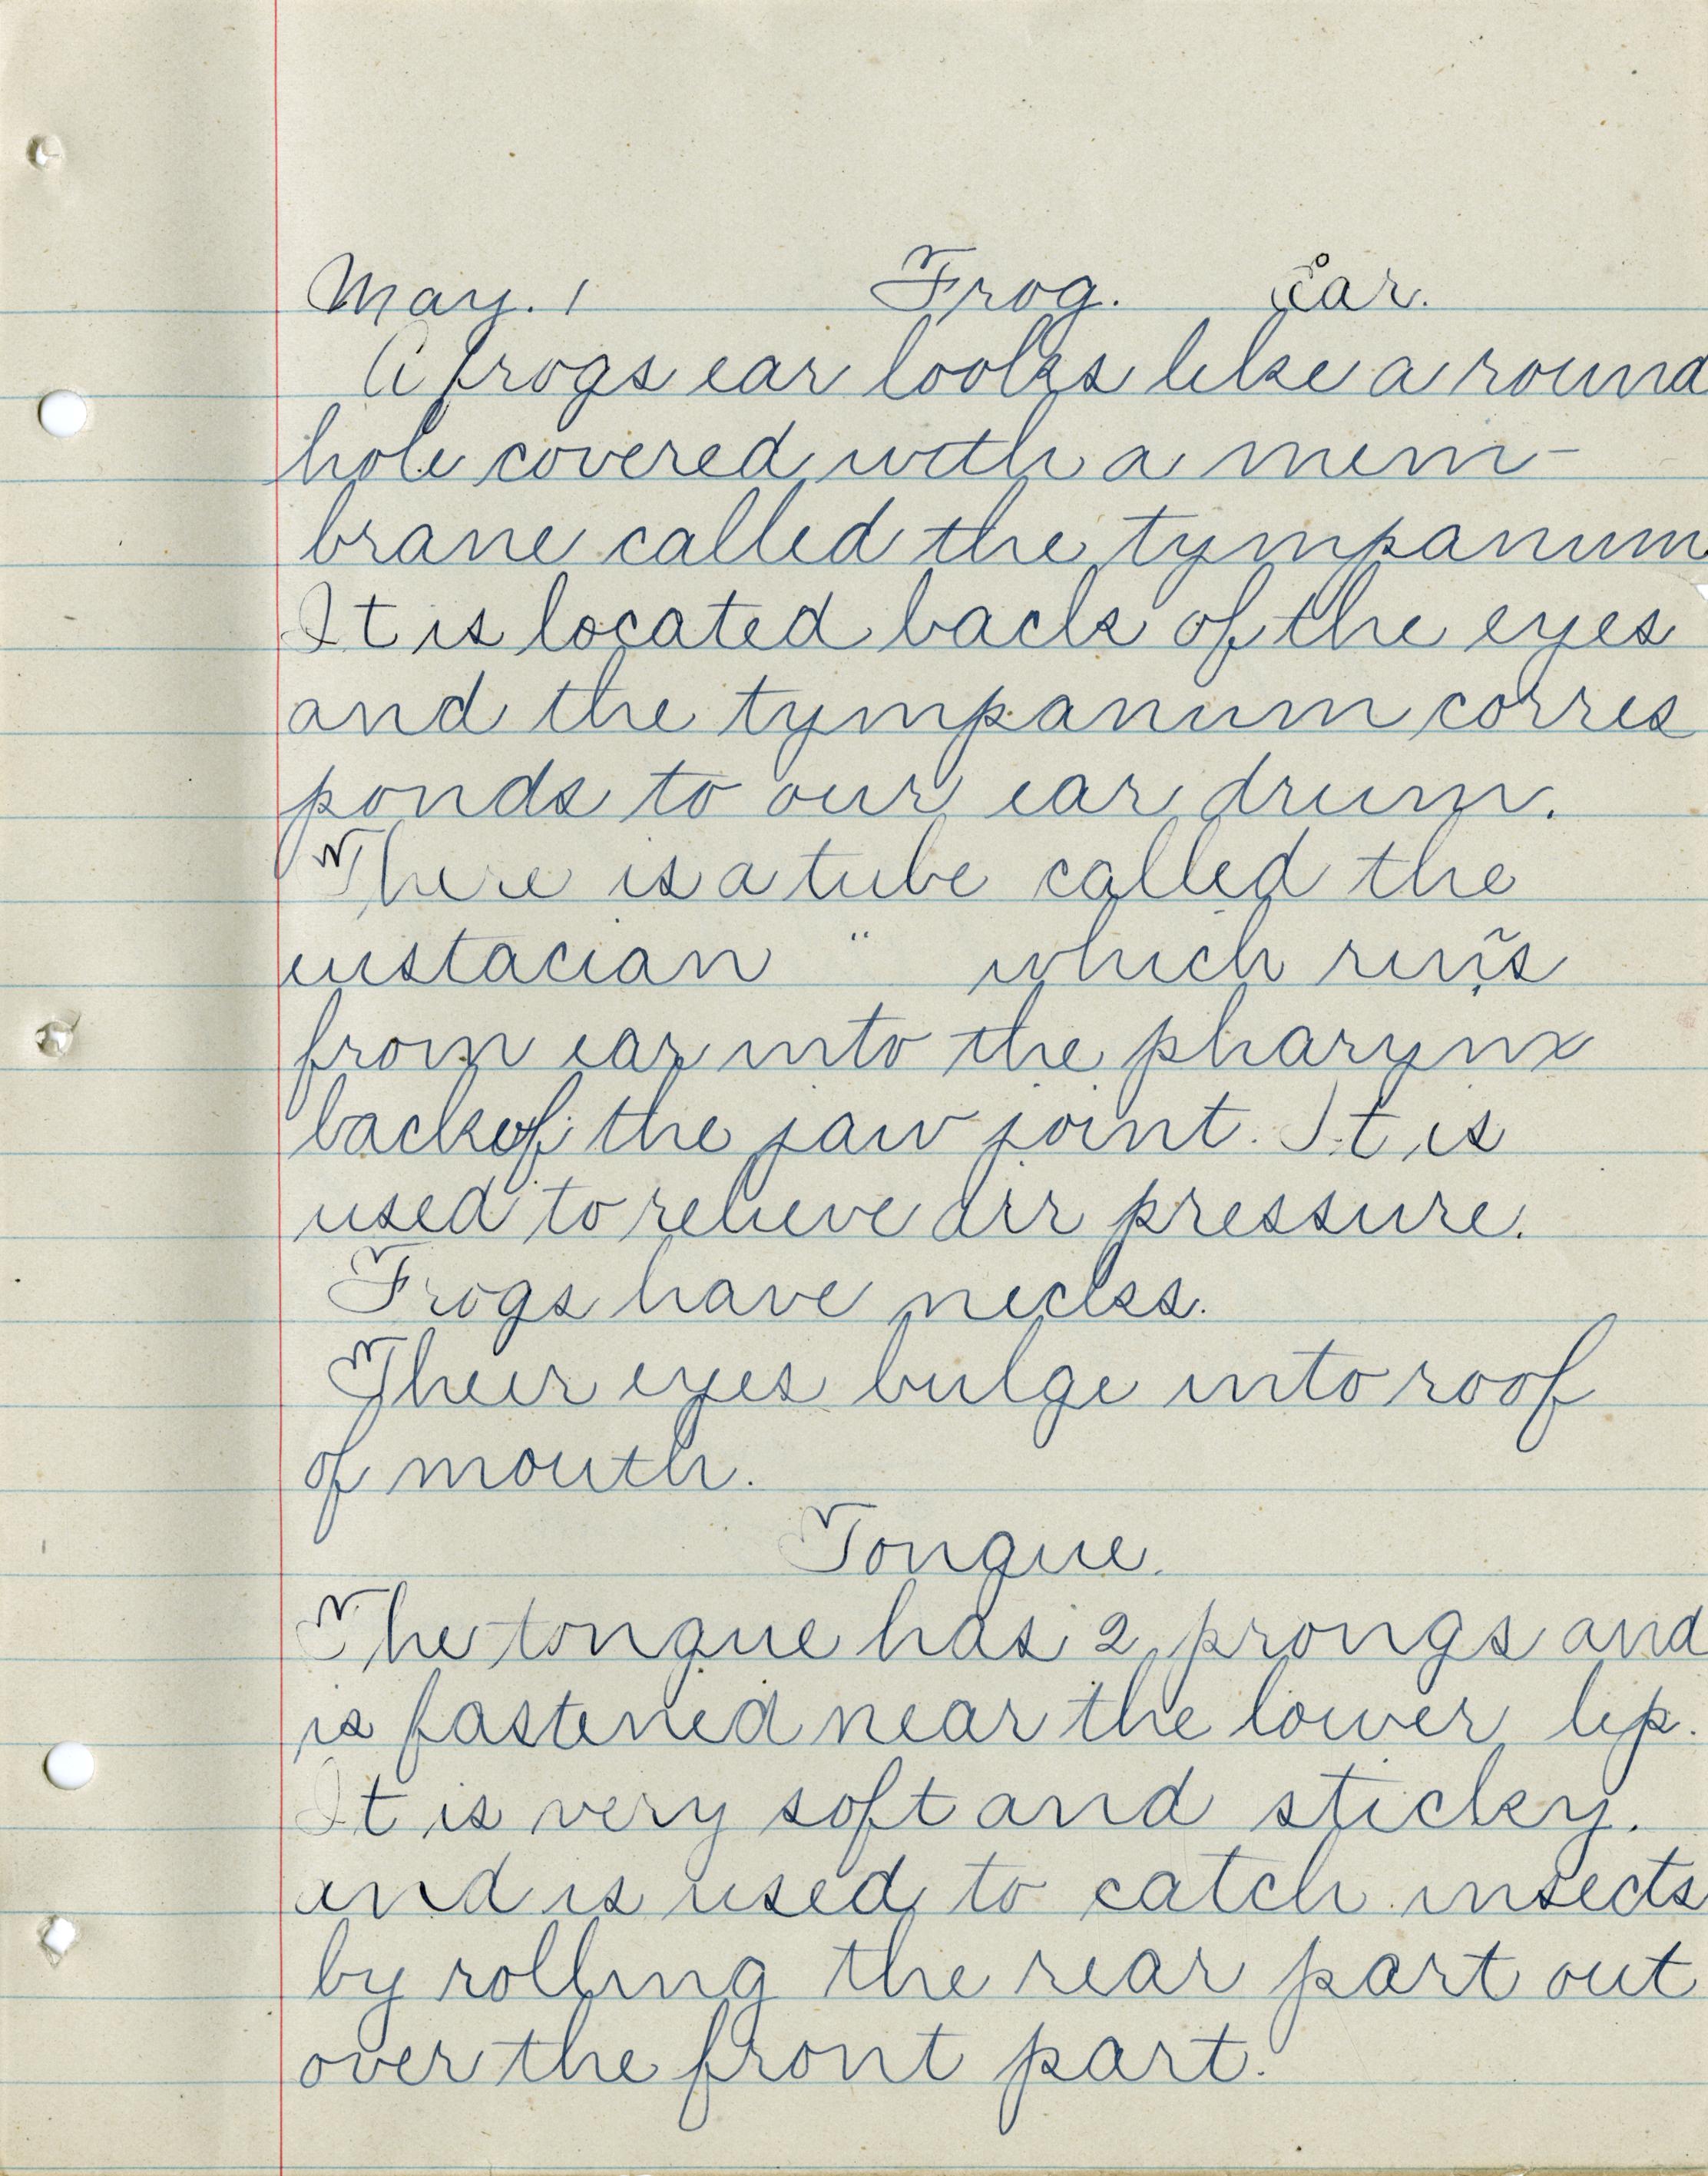 May. 1 Frog. Ear.
A frogs ear looks like a round
hole covered with a mem-
brane called the tympanum
It is located back of the eyes
and the tympanum corres
ponds to our ear drum.
There is a tube called the
eustacian " which runs
from ear into the pharynx
back of the jaw joint. It is
used to relieve air pressure.
Frogs have necks.
Their eyes bulge into roof
of mouth.
Tongue.
The tongue has 2 prongs and
is fastened near the lower lip.
It is very soft and sticky.
and is used to catch insects
by rolling the rear part out
over the front part.